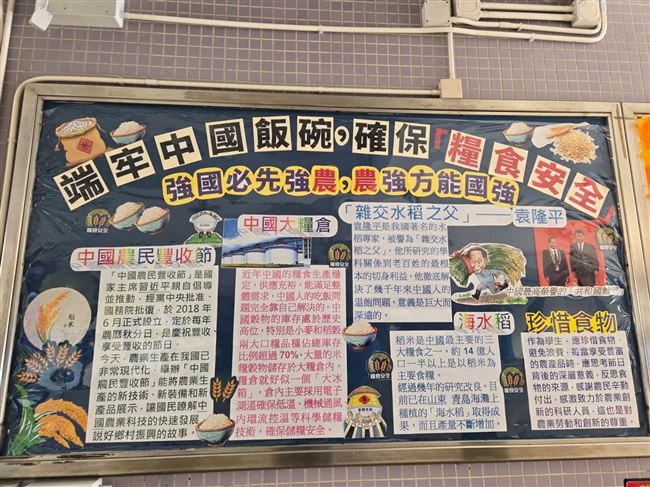 端牢中國飯碗，確保「糧食安全」
強國必先強農，農強方能國強
中國農民豐收節
「中國農民豐收節」是國
家主席習近平親自倡導
並推動，經黨中央批准、
國務院批復，於 2018 年
6 月正式設立，定於每年
農曆秋分日，是慶祝豐收
、享受豐收的節日。
今天，農業生產在我國已
非常現代化，舉辦「中國
農民豐收節」能將農業生
產的新技術、新裝備和新
產品展示，讓國民瞭解中
國農業科技的快速發展，
說好鄉村振興的故事。
中國大糧倉
近年中國的糧食生產穩
定、供應充裕，能滿足整
體需求，中國人的吃飯問
題完全靠自己解決的。中
國穀物的庫存處於歷史
高位，特別是小麥和稻穀
兩大口糧品種佔總庫存
比例超過 70%。大量的米
糧穀物儲存於大糧倉內，
糧倉就好似一個「大冰
箱」，倉內主要採用電子
測溫確保低溫、機械通風
、內環流控溫等科學儲糧
技術，確保儲糧安全。
「雜交水稻之父」——袁隆平
袁隆平是我國著名的水
稻專家，被譽為「雜交水
稻之父」，他所研究的學
科關係到老百姓的最根
本的切身利益，他徹底解
決了幾千年來中國人的
溫飽問題，意義是巨大而
深遠的。
中國最高榮譽的「共和國勳
海水稻
稻米是中國最主要的三
大糧食之一，約 14 億人
口一半以上是以稻米為
主要食糧。
經過幾年的研究改良，目
前已在山東 青島海灘上
種植的「海水稻」，取得成
果，而且產量不斷增加。
珍惜食物
作為學生，應珍惜食物，
避免浪費，每當享受豐富
的農產品時，應思考節日
背後的深層意義，反思食
物的來源，感謝農民辛勤
付出，感激致力於農業創
新的科研人員，這也是對
農業勞動和創新的尊重。
稻米
糧食安全
糧食安全
糧食安全
糧食安全